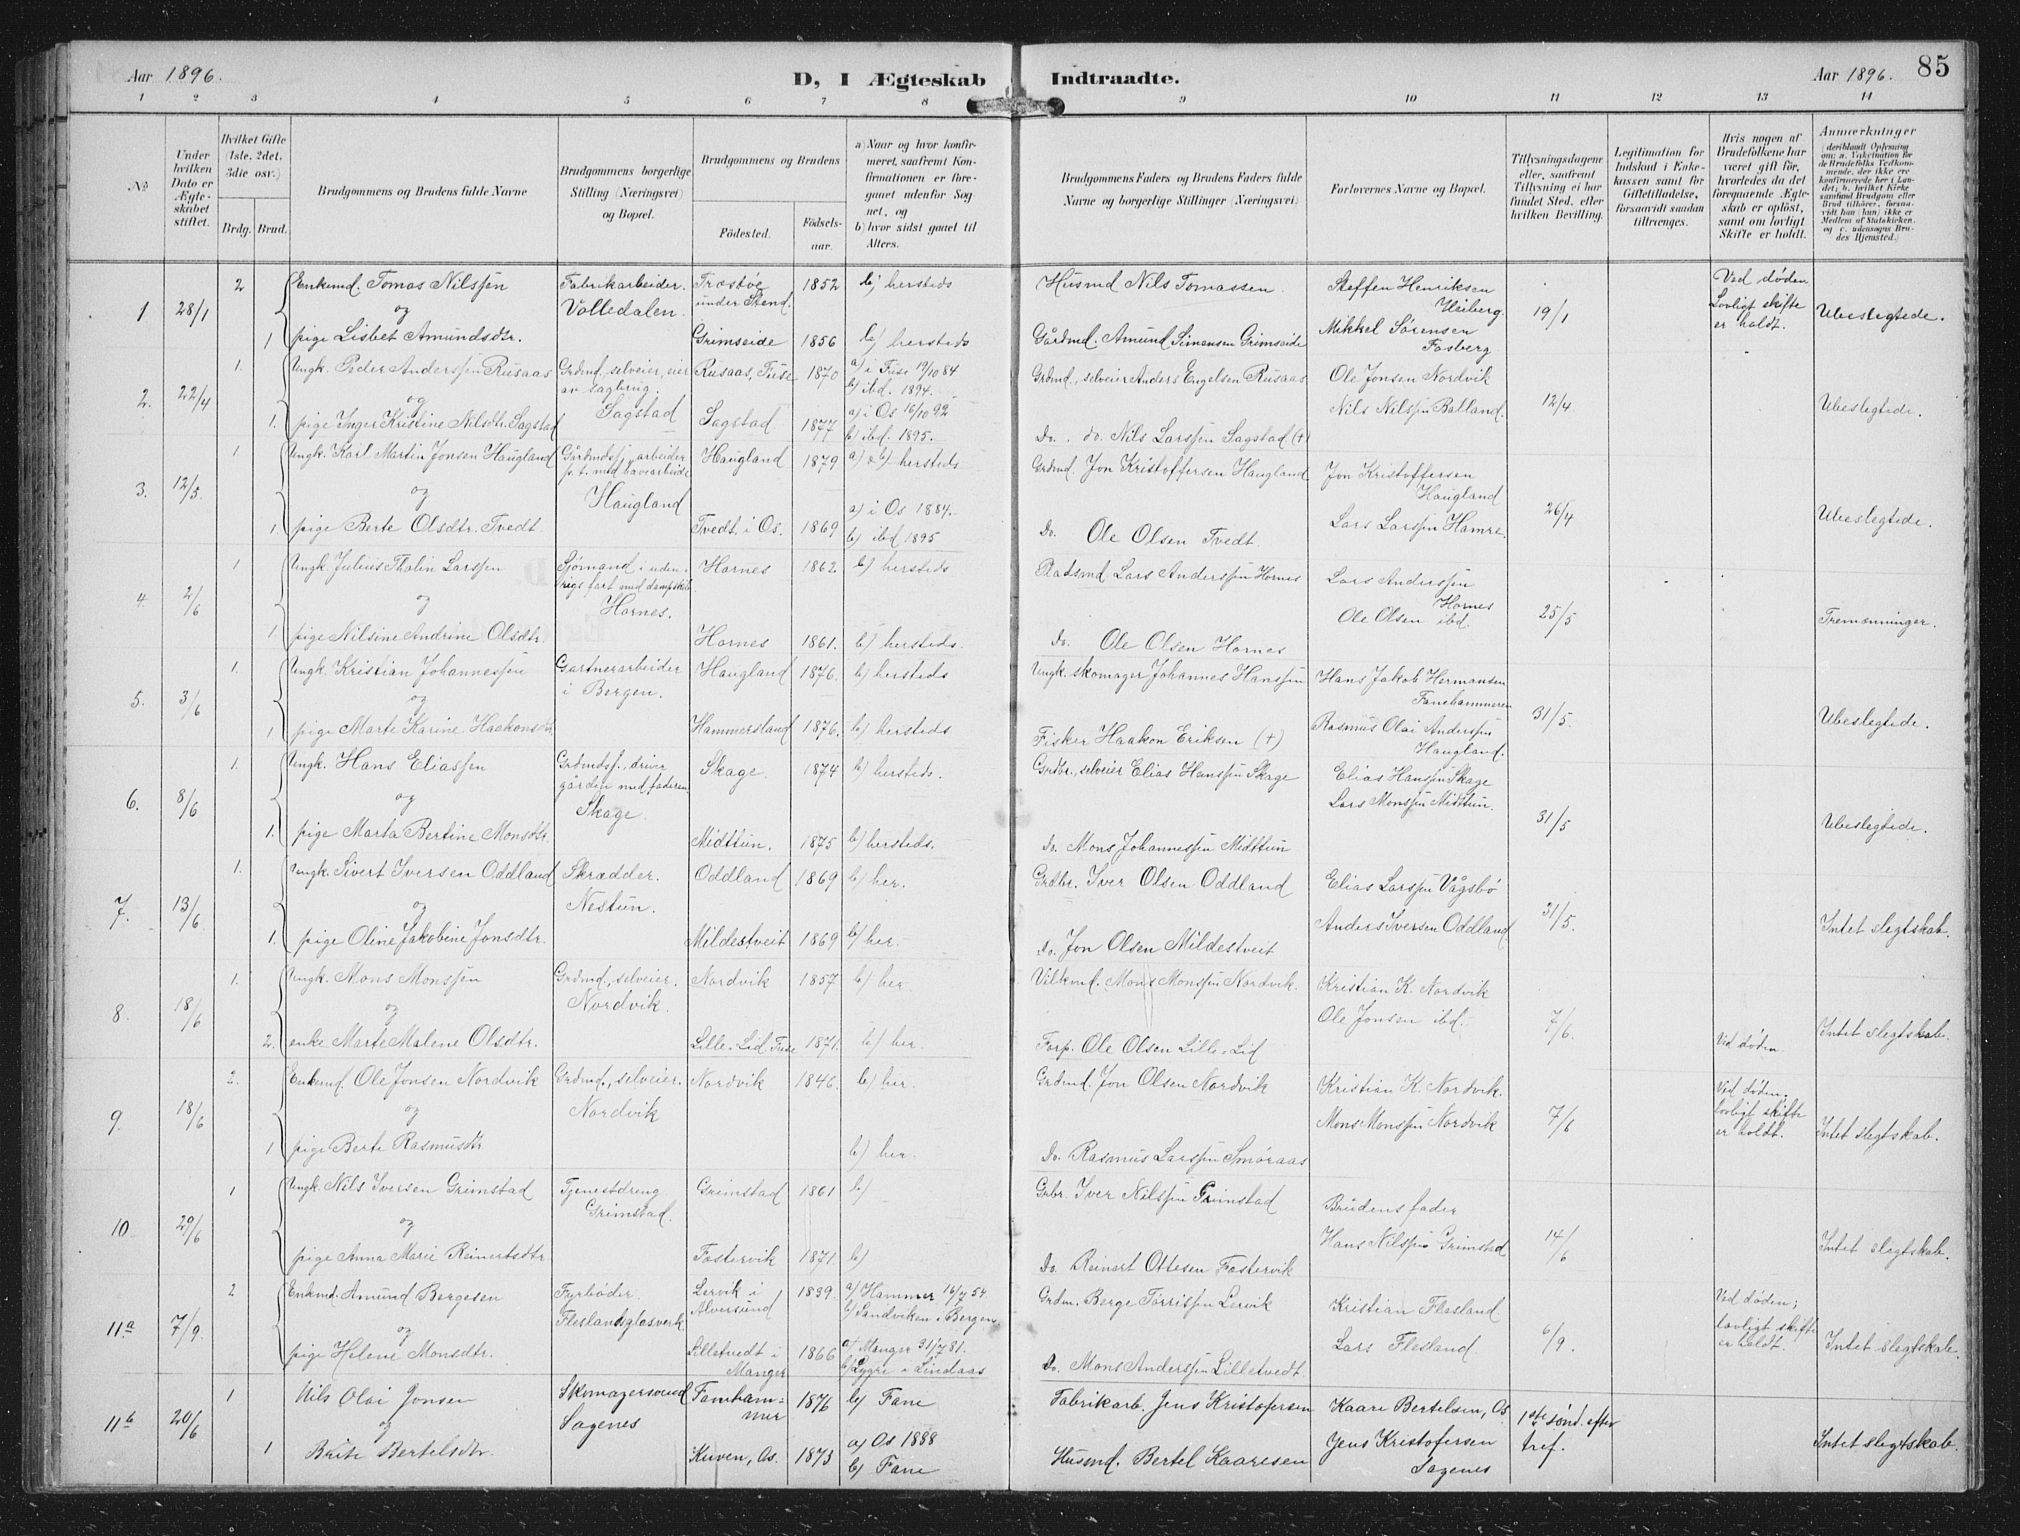 Aar 1896. D, I Ægteskab Indtraadte. Aar 1896. 85
1 2 3 4 5 6 7 8 9 10 11 12 13 14
No.
Under hvilken Dato er Ægteskabet stiftet.
Hvilket Gifte (1ste, 2det, 3die osv.)
Brdg. Brud.
Brudgommens og Brudens fulde Navne
Brudgommens borgerlige Stilling (Næringsvei) og Bopæl.
Brudgommens og Brudens
Födested. Födselsaar.
a) Naar og hvor konfirmeret, saafremt Konfirmationen er foregaaet udenfor Sognet, og
b) hvor sidst gaaet til Alters.
Brudgommens Faders og Brudens Faders fulde Navne og borgerlige Stillinger (Næringsvei)
Forlovernes Navne og Bopæl.
Tillysningsdagene eller, saafremt Tillysning ei har fundet Sted, efter hvilken Bevilling.
Legitimation for Indskud i Enkekassen samt for Giftetilladelse, forsaavidt saadan tiltrænges.
Hvis nogen af Brudefolkene har været gift för, hvorledes da det foregaaende Ægteskab er oplöst, samt om lovligt Skifte er holdt.
Anmærkninger (deriblandt Oplysning om: a. Vakcination for de Brudefolks Vedkommende, der ikke ere konfirmerede her i Landet; b. hvilket Kirkesamfund Brudgom eller Brud tilhörer, forsaavidt han (hun) ikke er Medlem af Statskirken, og c. udensogns Brudes Hjemsted.)
1 28/1 2 Enkemd. Tomas Nilssen Fabrikarbeider. Trostöe under Stend. 1852 b) hersteds Husmd Nils Tomassen Steffen Henriksen Heiberg 19/1 Ved döden Lovligt skifte er holdt. Ubeslegtede.
og Volledalen
1 pige Lisbet Amundsdtr. Grimseide 1856 b) hersteds Gårdmd. Amund Simensen Grimseide Mikkel Sörensen Fosberg
2. 22/4 1. Ungk. Peder Anderssen Rusaas Grdmd, selveier, eier av sagbrug. Rusaas, Fuse 1870 a) i Fuse 19/10 84 b) ibd. 1894. Grdmd., selveier Anders Engelsen Rusaas Ole Jonsen Nordvik 12/4 Ubeslegtede.
og Sagstad
1. pige Inger Kristine Nilsdtr. Sagstad Sagstad 1877 a) i Os 16/10 92 b) ibd. 1895. Do. do. Nils Larssen Sagstad (+) Nils Nilssen Balland.
3. 12/5 1 Ungk. Karl Martin Jonsen Haugland Gårdmdss., arbeider p. t. med havearbeide Haugland 1879 a) & b) hersteds Grdmd. Jon Kristoffersen Haugland Jon Kristoffersen Haugland 26/4 Ubeslegtede.
og Haugland
1. pige Berte Olsdtr. Tvedt Tvedt i Os. 1869 a) i Os 1884. b) ibd 1895 Do. Ole Olsen Tvedt. Lars Larssen Hamre.
4. 2/6 1 Ungk. Julius Thalin Larssen Sjömand i udenrigs fart med dampskib Hornes 1862 b) hersteds Lars Anderssen Hornes Lars Anderssen Hornes 25/5 Tremenninger.
og Hornes.
1. pige Nilsine Andrine Olsdtr. Hornes 1861. b) hersteds. Do. Ole Olsen Hornes Ole Olsen ibd.
5. 3/6 1. Ungk. Kristian Johannessen Gartnerarbeider i Bergen. Haugland 1876. b) hersteds Ungk. skomager Johannes Hanssen Hans Jakob Hermansen Fanehammeren 31/5. Ubeslegtede.
og
1 pige Marte Karine Haakonsdtr Hammersland 1876. b) hersteds Fisker Haakon Eriksen (+) Rasmus Olai Anderssen Haugland.
6. 8/6 1. Ungk. Hans Eliassen Grdmdss., driver gården med faderen Skage. 1874 b) hersteds. Grdbr., selveier Elias Hanssen Skage Elias Hanssen Skage 31/5 Ubeslegtede.
og Skage.
1. pige Marta Bertine Monsdtr. Midttun. 1875 b) hersteds. Do. Mons Johannessen Midttun Lars Monssen Midttun.
7. 13/6 1. Ungk. Sivert Iversen Oddland Skrædder. Oddland 1869 b) her. Grdbr. Iver Olsen Oddland Elias Larssen Vågsbö 31/5. Intet slegtskab.
og Nestun.
1. pige Oline Jakobine Jonsdtr. Mildestveit 1869 b) her. Do. Jon Olsen Mildestveit Anders Iversen Oddland
8. 18/6 1. Ungk. Mons Monssen Grdmd., selveier. Nordvik 1857 b) her Vilkmd. Mons Monssen Nordvik. Kristian K. Nordvik 7/6. Intet slegtskab.
og Nordvik.
2. enke Marte Malene Olsdtr. Lille-Lid, Fuse 1871. b) her. Forp. Ole Olsen Lille-Lid Ole Jonsen ibd. Ved döden
9. 18/6 2. Enkemd. Ole Jonsen Nordvik Grdmd., selveier. Nordvik 1846. b) her. Grdmd. Jon Olsen Nordvik Kristian K. Nordvik. 7/6 Ved döden. lovligt skifte er holdt. Intet slegtskab.
og Nordvik
1 pige Berte Rasmusdtr b) her. Do. Rasmus Larssen Smöraas Mons Monssen Nordvik
10 29/6 1 Ungk. Nils Iversen Grimstad Tjenestdreng Grimstad. Grimstad 1861 b) Grbr. Iver Nilssen Grimstad Brudens fader 14/6 Intet slegtskab.
og
pige Anna Marie Reinertsdtr. Fostervik 1871. b) Do. Reinert Ottesen Fostervik Hans Nilssen Grimstad
11a 7/9. 2 Enkmd. Amund Bergesen Fyrböder. Lervik i Alversund 1839. a) Hammer 16/7 54. b) Sandviken i Bergen Grdm. Berge Torrissen Lervik Kristian Flesland 6/9. Ved döden; lovligt skifte er holdt. Intet slegtskab.
og Fleslandsglasverk
pige Helene Monsdtr. Lilletvedt i Manger 1866 a) Manger 31/7 81. b) Lygre i Lindaas Do. Mons Anderssen Lilletvedt. Lars Flesland
11b 20/6 1 Nils Olai Jonsen Skomagersvend Fanehammer 1876 b) Fane Fabrikarb. Jens Kristofersen Kaare Bertelsen, Os. 1ste sönd. efter tref. Intet slegtskab.
og Sagenes
1 Brite Bertelsdtr Kuven, Os. 1873 a) Os 1888 b) Fane Husmd. Bertel Kaaresen Jens Kristofersen Sagenes